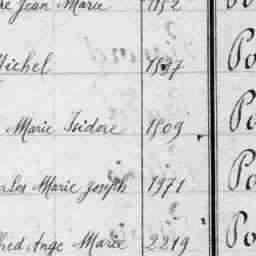 re Jean Marie 1152
Michel 1537 Po
Marie Isidore 1809 Po
rles Marie Joseph 1971 Po
fred Ange Marie 2219 Po